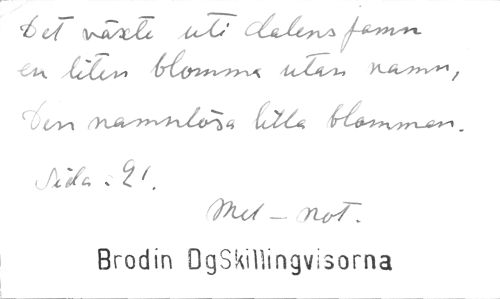 Det växte uti dalens famn
en liten blomma utan namn,
Den namnlösa lilla blomman.
Sida. 91.
Mel – not.
Brodin DgSkillingvisorna